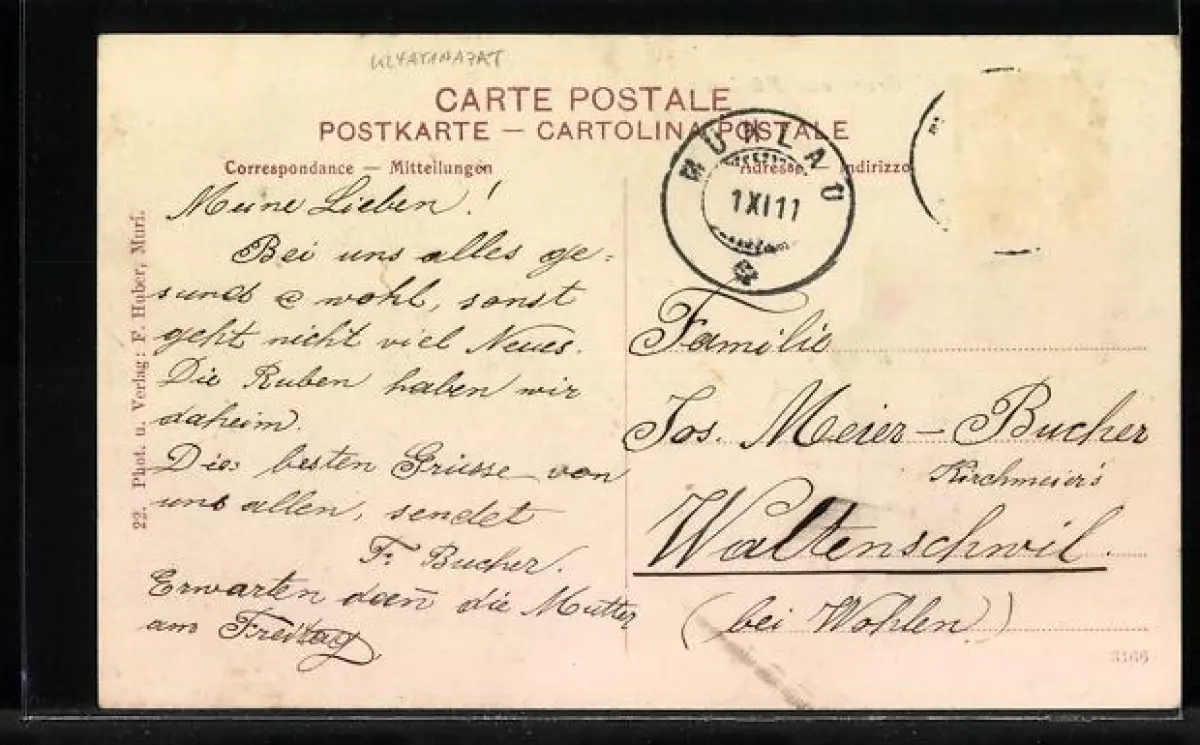 CARTE POSTALE
POSTKARTE — CARTOLINA POSTALE
Correspondance — Mitteilungen
Adresse — Indirizzo
MÜHLAU
1 XI 11
Meine Lieben!
Bei uns alles ge=
sund & wohl, sonst
geht nicht viel Neues.
Die Ruben haben wir
daheim.
Die besten Grüsse von
uns allen, sendet
F. Bucher.
Erwarten dan̄ die Mutter
am Freitag
Familie
Jos. Meier – Bucher
Kirchmeier's
Waltenschwil.
(bei Wohlen)
22. Phot. u. Verlag: F. Huber, Muri.
3166